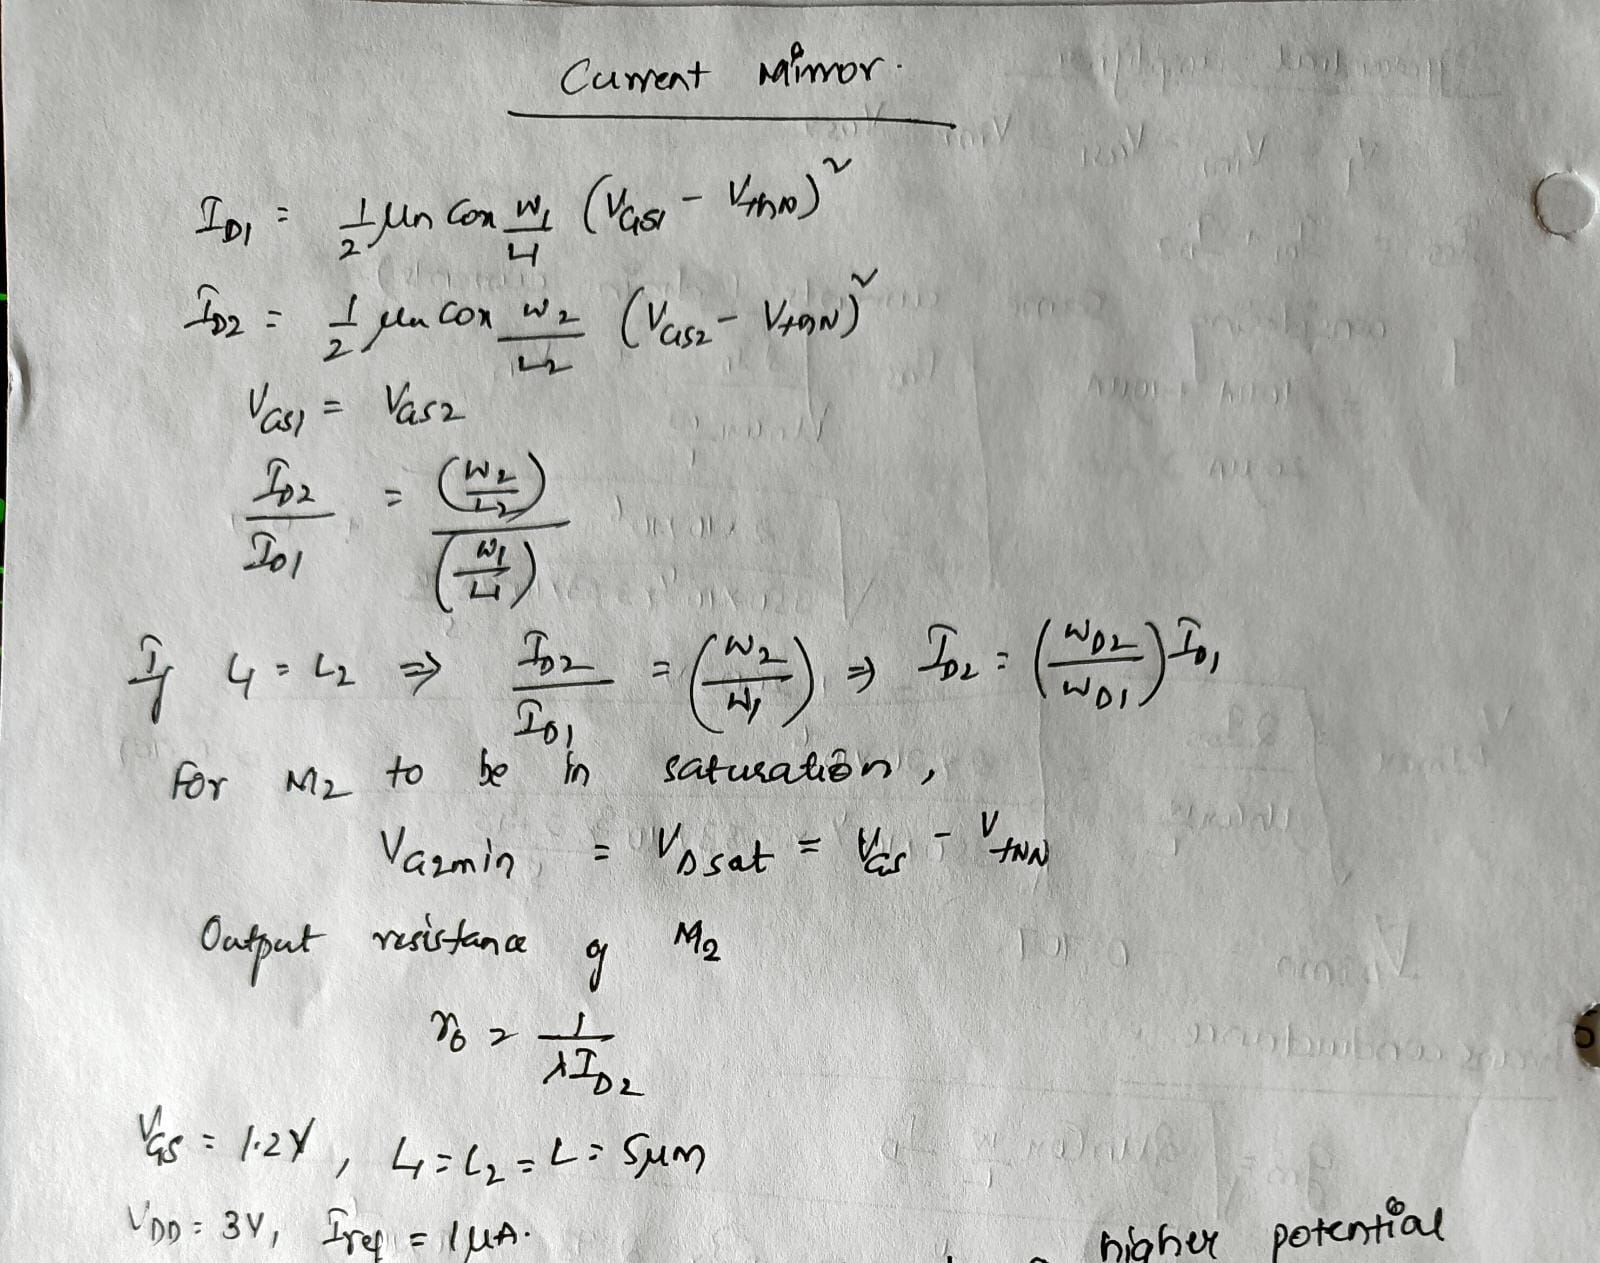 Current Mirror.
I_D1 = 1/2 μn Cox W1/L1 (VGS1 - VthN)²
I_D2 = 1/2 μn Cox W2/L2 (VGS2 - VthN)²
VGS1 = VGS2
I_D2/I_D1 = (W2/L2)/(W1/L1)
If L1 = L2 ⇒ I_D2/I_D1 = (W2/W1) ⇒ I_D2 = (W_D2/W_D1) I_D1
For M2 to be in saturation,
= VDsat = VGS - VTHN
Output resistance of M2
r0 = 1/λI_D2
VGS = 1.2V, L1 = L2 = L = 5μm
VDD = 3V, Iref = 1μA.
higher potential